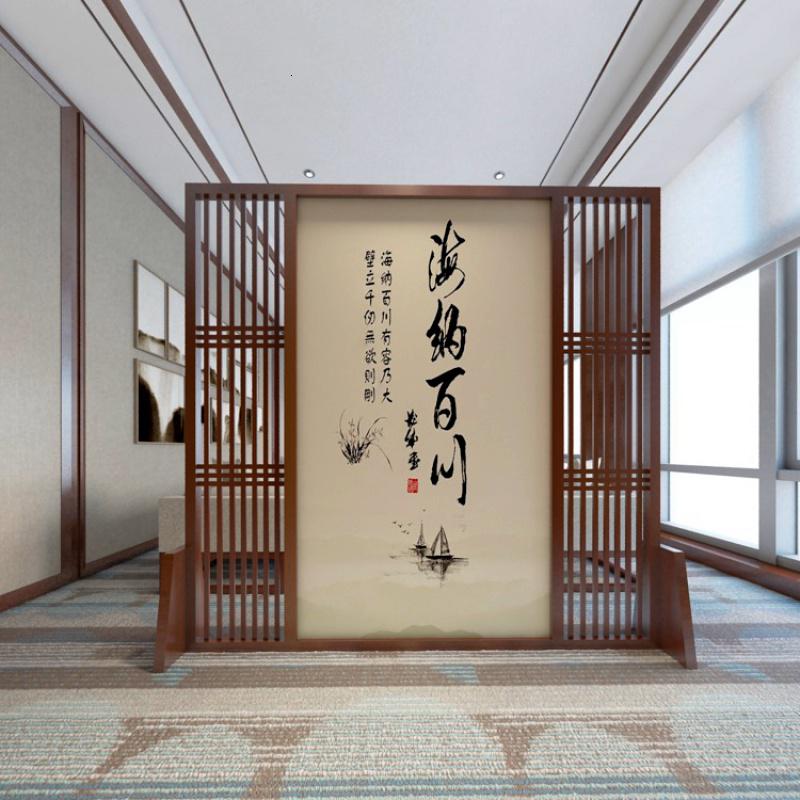 海纳百川
海纳百川有容乃大
壁立千仞无欲则刚